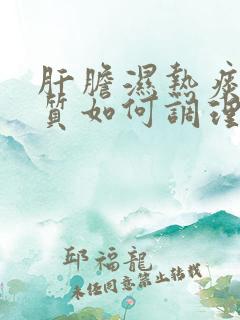 肝膽濕熱症
質如何調理
邱福龍
未经同意禁止转载